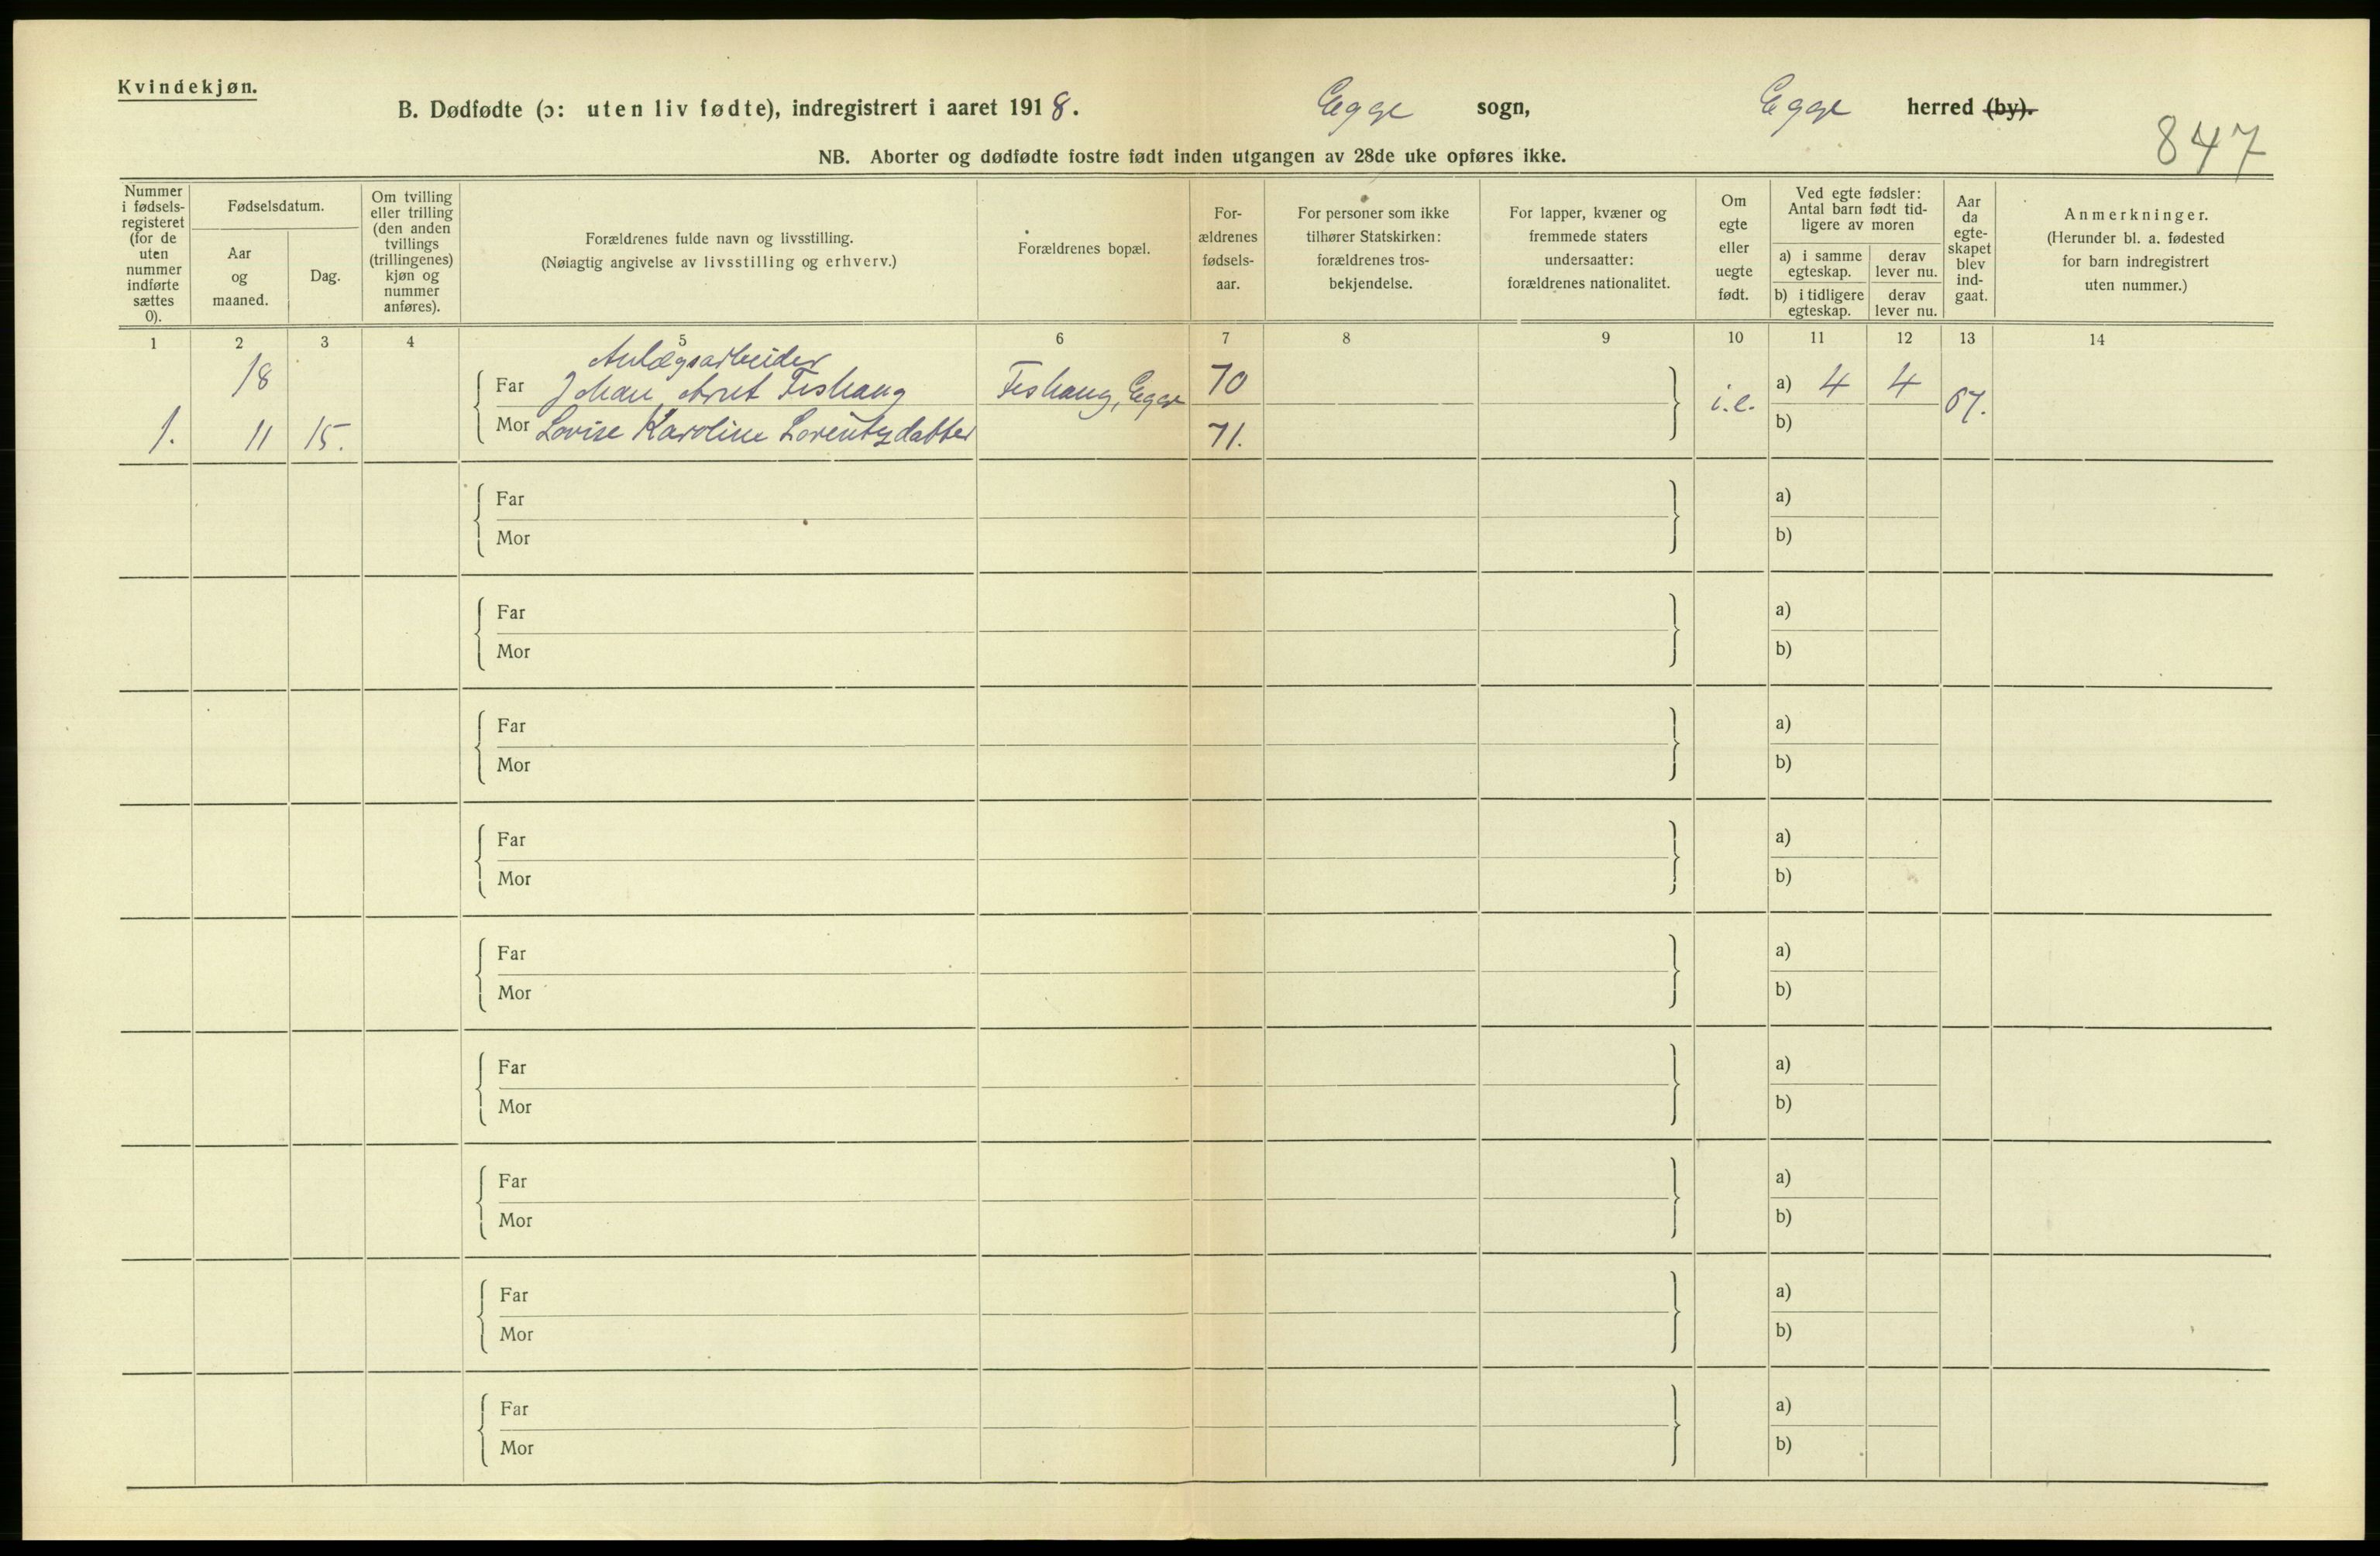 Kvindekjøn.
B. Dødfødte (ɔ: uten liv fødte), indregistrert i aaret 1918. Egge sogn, Egge herred (by).
847
NB. Aborter og dødfødte fostre født inden utgangen av 28de uke opføres ikke.
Nummer i fødsels-registeret (for de uten nummer indførte sættes 0).
Fødselsdatum.
Aar og maaned.
Dag.
Om tvilling eller trilling (den anden tvillings (trillingenes) kjøn og nummer anføres).
Forældrenes fulde navn og livsstilling.
(Nøiagtig angivelse av livsstilling og erhverv.)
Forældrenes bopæl.
For-ældrenes fødsels-aar.
For personer som ikke tilhører Statskirken: forældrenes tros-bekjendelse.
For lapper, kvæner og fremmede staters undersaatter: forældrenes nationalitet.
Om egte eller uegte født.
Ved egte fødsler: Antal barn født tid-ligere av moren
a) i samme egteskap.
derav lever nu.
b) i tidligere egteskap.
derav lever nu.
Aar da egte-skapet blev ind-gaat.
Anmerkninger.
(Herunder bl. a. fødested for barn indregistrert uten nummer.)
1 2 3 4 5 6 7 8 9 10 11 12 13 14
Anlægsarbeider
18 Far Johan Arnt Fishaug Fishaug, Egge 70 i.e. a) 4 4 07.
1. 11 15. Mor Lovise Karoline Lorentzdatter 71. b)
Far a)
Mor b)
Far a)
Mor b)
Far a)
Mor b)
Far a)
Mor b)
Far a)
Mor b)
Far a)
Mor b)
Far a)
Mor b)
Far a)
Mor b)
Far a)
Mor b)